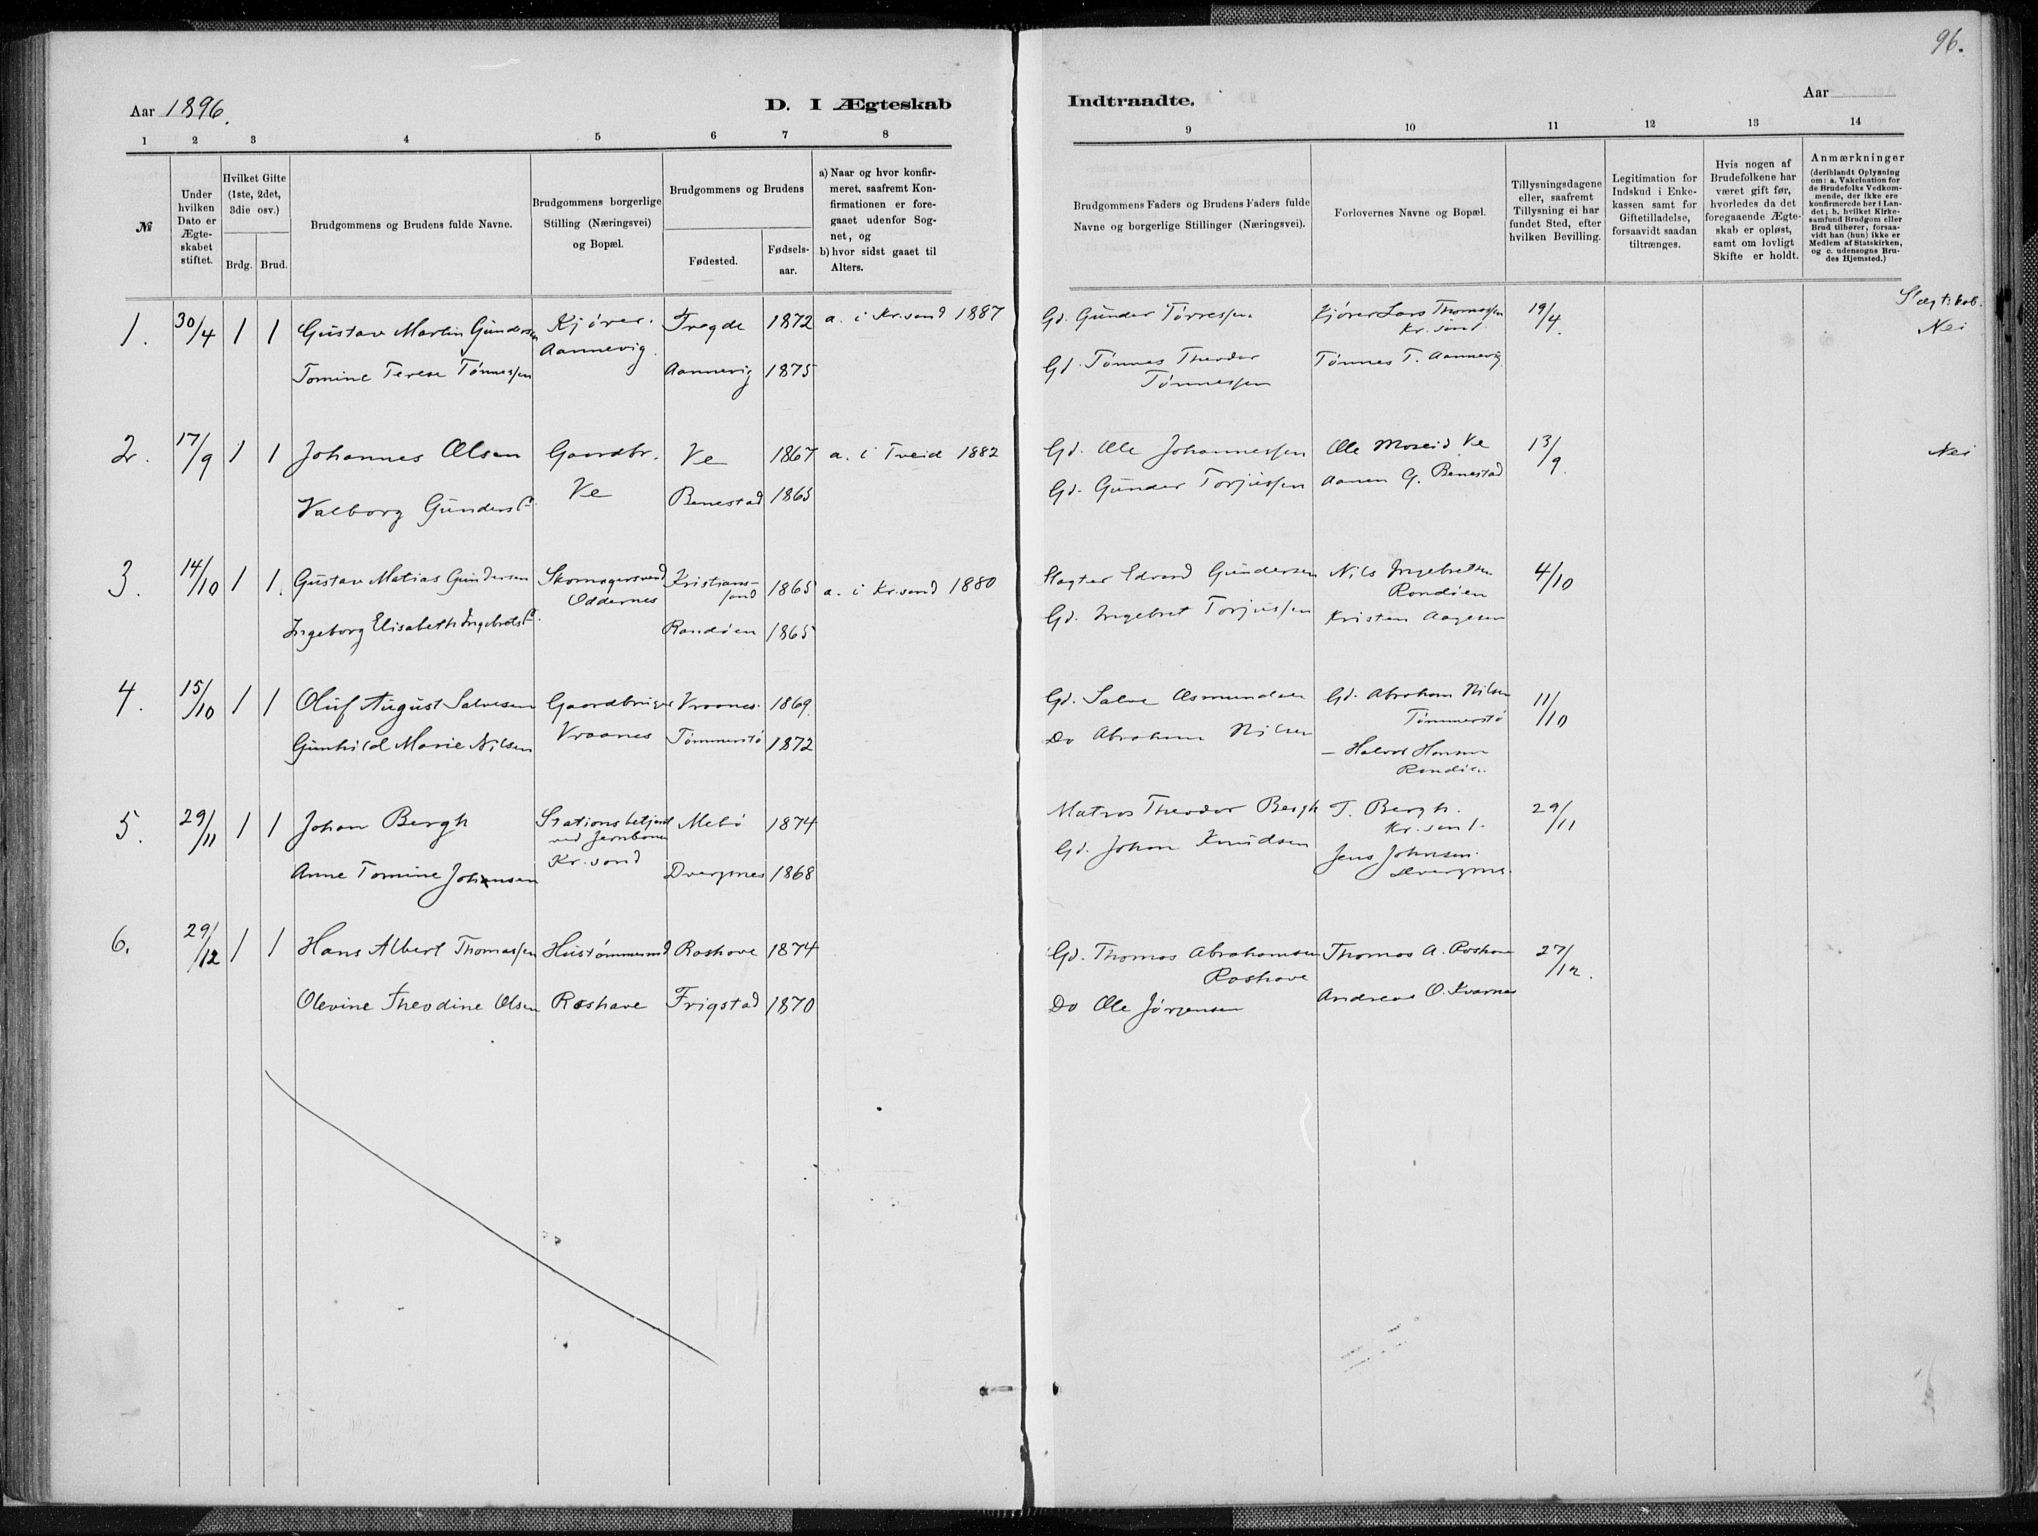 96.
Aar 1896.
D. I Ægteskab
Indtraadte.
Aar
1 2 3 4 5 6 7 8
9 10 11 12 13 14
№
Under
hvilken
Dato er
Ægte-
skabet
stiftet.
Hvilket Gifte
(1ste, 2det,
3die osv.)
Brdg. Brud.
Brudgommens og Brudens fulde Navne.
Brudgommens borgerlige
Stilling (Næringsvei)
og Bopæl.
Brudgommens og Brudens
Fødested.
Fødsels-
aar.
a) Naar og hvor konfir-
meret, saafremt Kon-
firmationen er fore-
gaaet udenfor Sog-
net, og
b) hvor sidst gaaet til
Alters.
Brudgommens Faders og Brudens Faders fulde
Navne og borgerlige Stillinger (Næringsvei).
Forlovernes Navne og Bopæl.
Tillysningsdagene
eller, saafremt
Tillysning ei har
fundet Sted, efter
hvilken Bevilling.
Legitimation for
Indskud i Enke-
kassen samt for
Giftetilladelse,
forsaavidt saadan
tiltrænges.
Hvis nogen af
Brudefolkene har
været gift før,
hvorledes da det
foregaaende Ægte-
skab er opløst,
samt om lovligt
Skifte er holdt.
Anmærkninger
(deriblandt Oplysning
om: a. Vakcination for
de Brudefolks Vedkom-
mende, der ikke ere
konfirmerede her i Lan-
det; b. hvilket Kirke-
samfund Brudgom eller
Brud tilhører, forsaa-
vidt han (hun) ikke er
Medlem af Statskirken,
og c. udensogns Bru-
des Hjemsted.)
Slægtskab.
1. 30/4 1 1 Gustav Martin Gundersen Kjører. Tregde 1872 a. i Kr.sand 1887 Gd. Gunder Tørressen Kjører Lars Thomassen 19/4. Nei
Aannevig. Kr. sand
Tomine Terese Tønnessen Aannevig 1875 Gd. Tønnes Theodor Tønnes T. Aannevig
Tønnessen
2. 17/9 1 1 Johannes Olsen Gaardbr. Ve 1867 a. i Tveid 1882 Gd. Ole Johannessen Ole Moseid Ve 13/9. Nei
Valborg Gundersd. Ve Benestad 1865 Gd. Gunder Torjussen Aanen G. Benestad
3. 14/10 1 1. Gustav Matias Gundersen Skomagersvend Kristians- 1865 a. i Kr.sand 1880 Slagter Edvard Gundersen Nils Ingebretsen 4/10
Oddernes sand Randøen
Ingeborg Elisabeth Ingebretsd. Randøen 1865 Gd. Ingebret Torjussen Kristen Aagesen
4. 15/10 1 1 Oluf August Salvesen Gaardbruger Vraanes. 1869. Gd. Salve Asmundsen Gd. Abraham Nilsen 11/10
Tømmerstø
Gunhild Marie Nilsen Vraanes Tømmerstø 1872 Do Abraham Nilsen – Halvor Hansen
Randøen
5. 29/11 1 1 Johan Bergh Stationsbetjent Mebø 1874 Matros Theodor Bergh T. Bergh. 29/11
ved Jernbanen Kr. sand.
Anne Tomine Johnsen Kr. sand Dvergsnes 1868 Gd. Johan Knudsen Jens Johnsen
Dvergsnes.
6. 29/12 1 1 Hans Albert Thomassen Hustømmermd Roshave 1874 Gd. Thomas Abrahamsen Thomas A. Roshave 27/12.
Roshave
Olevine Theodine Olsen Roshave Frigstad 1870 Do Ole Jørgensen Andreas O. Kvarnes